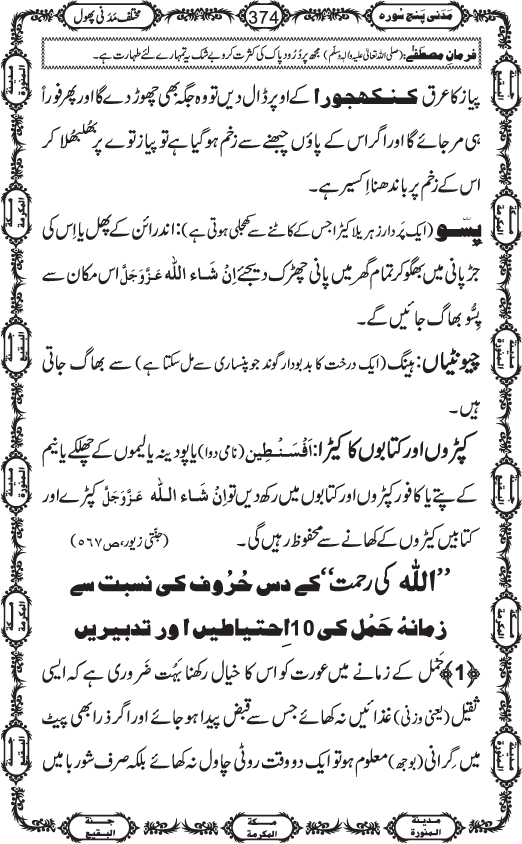 مَدَنی پنج سُورہ
374
مختلف مَدَنی پھول
فرمانِ مصطَفٰے: (صلی اللہ تعالیٰ علیہ والہٖ وسلّم) مجھ پر دُرُود پاک کی کثرت کرو بے شک یہ تمہارے لئے طہارت ہے۔
پیاز کا عرق کنکھجورا کے اوپر ڈال دیں تو وہ جگہ بھی چھوڑ دے گا اور پھر فوراً
ہی مر جائے گا اور اگر اس کے پاؤں چبھنے سے زخم ہو گیا ہے تو پیاز توے پر بھُلبھُلا کر
اس کے زخم پر باندھنا اِکسیر ہے۔
پِسّو (ایک پَردار زہریلا کیڑا جس کے کاٹنے سے کھجلی ہوتی ہے): اندرائن کے پھل یا اِس کی
جڑ پانی میں بھگو کر تمام گھر میں پانی چھڑک دیجئے اِنْ شَاء اللہ عَزَّوَجَلَّ اس مکان سے
پِسُّو بھاگ جائیں گے۔
چیونٹیاں: ہینگ (ایک درخت کا بدبودار گوند جو پنساری سے مل سکتا ہے) سے بھاگ جاتی
ہیں۔
کپڑوں اور کتابوں کا کیڑا: اَفْسَنْطِین (نامی دوا) یا پودینہ یا لیموں کے چھلکے یا نیم
کے پتے یا کافور کپڑوں اور کتابوں میں رکھ دیں تو اِنْ شَاء اللہ عَزَّوَجَلَّ کپڑے اور
کتابیں کیڑوں کے کھانے سے محفوظ رہیں گی۔ (جنّتی زیور، ص ۵۶۷)
”اللہ کی رحمت“ کے دس حُرُوف کی نسبت سے
زمانۂ حَمْل کی 10 اِحتیاطیں اور تدبیریں
﴿1﴾ حَمْل کے زمانے میں عورت کو اس کا خیال رکھنا بَہُت ضَروری ہے کہ ایسی
ثقیل (یعنی وزنی) غذائیں نہ کھائے جس سے قبض پیدا ہو جائے اور اگر ذرا بھی پیٹ
میں گِرانی (بوجھ) معلوم ہو تو ایک دو وقت روٹی چاول نہ کھائے بلکہ صرف شوربا میں
مدینۃ المنورۃ
مکۃ المکرمۃ
جنۃ البقیع